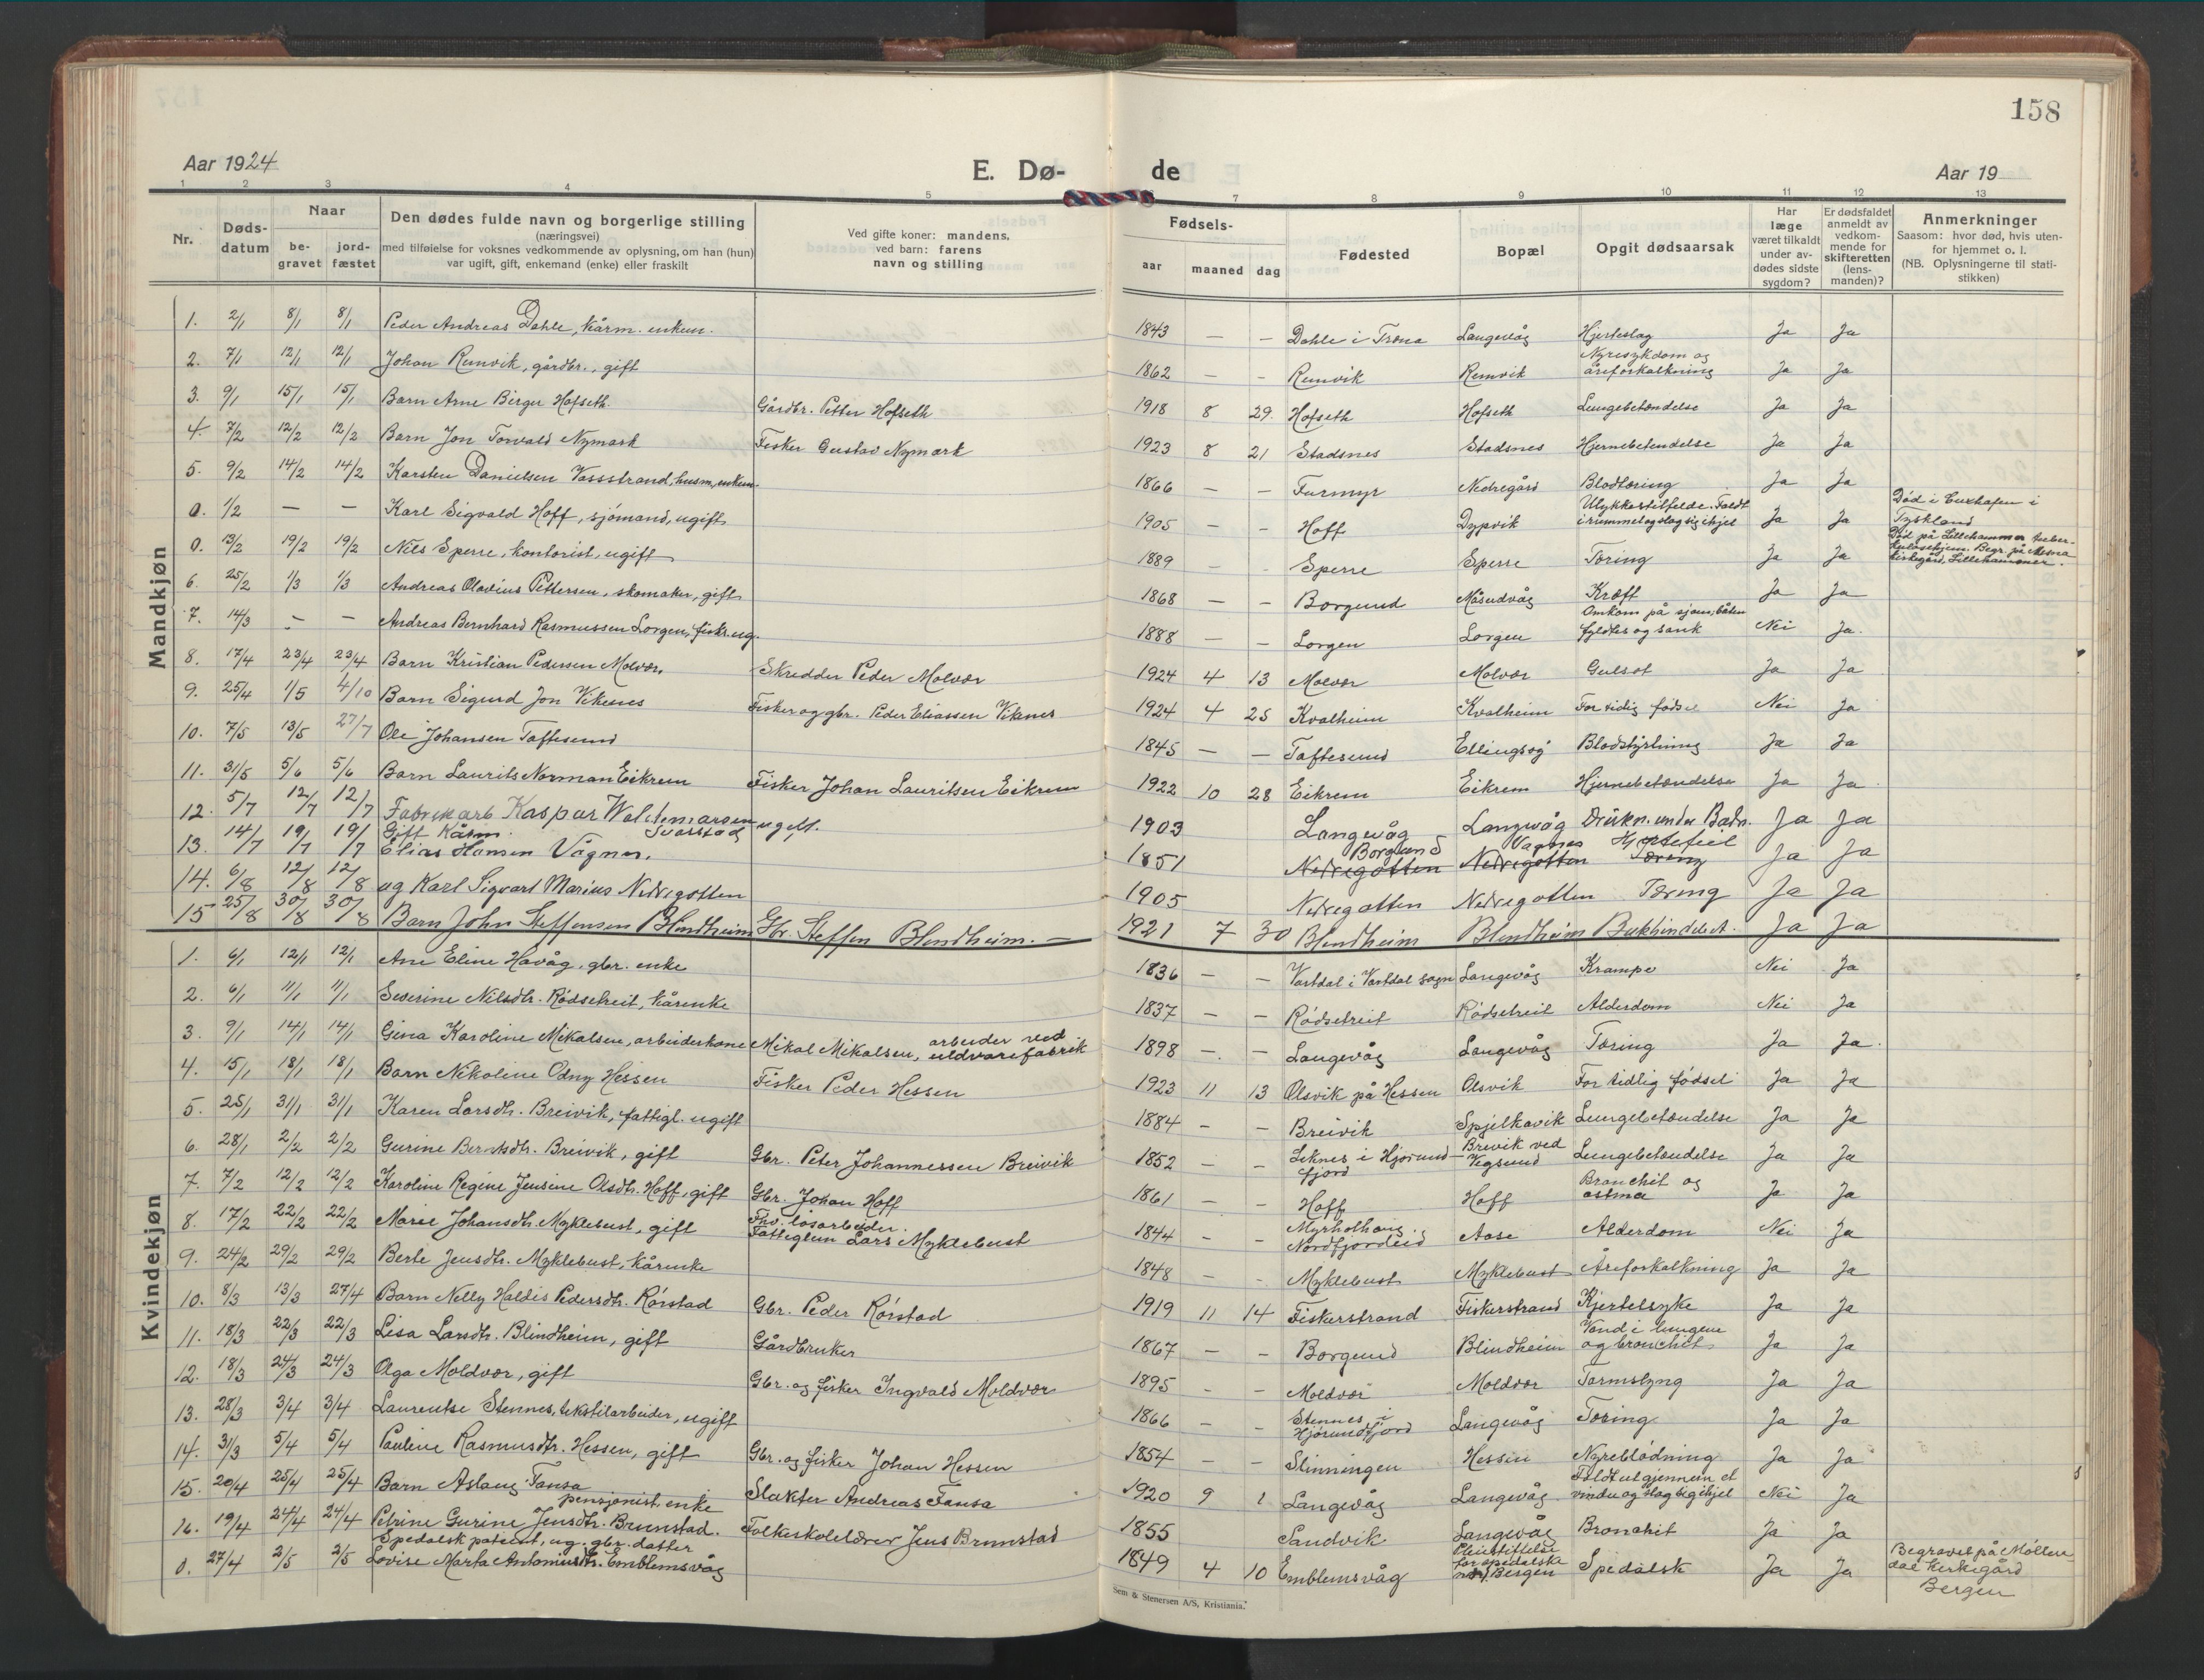 158
Aar 1924
E. Dø-
de
Aar 19
1 2 3 4 5 7 8 9 10 11 12 13
Nr.
Døds-
datum
Naar
be-
gravet
jord-
fæstet
Den dødes fulde navn og borgerlige stilling
(næringsvei)
med tilføielse for voksnes vedkommende av oplysning, om han (hun)
var ugift, gift, enkemand (enke) eller fraskilt
Ved gifte koner: mandens,
ved barn: farens
navn og stilling
Fødsels-
aar maaned dag
Fødested
Bopæl
Opgit dødsaarsak
Har
læge
været tilkaldt
under av-
dødes sidste
sygdom?
Er dødsfaldet
anmeldt av
vedkom-
mende for
skifteretten
(lens-
manden)?
Anmerkninger
Saasom: hvor død, hvis uten-
for hjemmet o. l.
(NB. Oplysningerne til stati-
stikken)
Mandkjøn
1. 2/1 8/1 8/1 Peder Andreas Dahle, kårm. enkem. 1843 — — Dahle i Trona Langevåg Hjerteslag Ja Ja
2. 7/1 12/1 12/1 Johan Remvik, gårdbr., gift 1862 - - Remvik Remvik Nyresykdom og åreforkalkning Ja Ja
3. 9/1 15/1 15/1 Barn Arne Birger Hofseth. Gårdbr. Petter Hofseth 1918 8 29. Hofseth Hofseth Lungebetændelse Ja Ja
4. 7/2 12/2 12/2 Barn Jon Torvald Nymark Fisker Gustav Nymark 1923 8 21 Stadsnes Stadsnes Hjernebetendelse Ja Ja
5. 9/2 14/2 14/2 Karsten Danielsen Vassstrand, husm., enkem. 1866 — — Furmyr Nedregård Blodtæring Ja Ja
0. 1/2 — — Karl Sigvald Hoff, sjómand, ugift 1905 - - Hoff Dypvik Ulykkestilfelde. Faldt i rummet og slog sig ihjel Ja Ja Død i Cuxhafen i Tyskland
0. 13/2 19/2 19/2 Nils Sperre, kontorist, ugift 1889 - - Sperre Sperre Tæring Ja Ja Død på Lillehammer tuber-kulosehjem. Begr. på Mesna kirkegård, Lillehammer.
6. 25/2 1/3 1/3 Andreas Olavius Pettersen, skomaker, gift 1868 — — Borgund Måsudvåg Kræft Ja Ja
7. 14/3 - — Andreas Bernhard Rasmussen Lorgen, fisker. ug. 1888 — — Lorgen Lorgen Omkom på sjøen; båten fyldtes og sank Nei Ja.
8. 17/4 23/4 23/4 Barn Kristian Pedersen Molvær. Skredder Peder Molvær 1924 4 13 Molvær Molvær Gulsot Ja Ja
9. 25/4 1/5 4/10 Barn Sigurd Jon Viknes Fisker og gbr. Peder Eliassen Viknes 1924 4 25 Kvalheim Kvalheim For tidig fødsel Nei Ja
10. 7/5 13/5 27/7 Ole Johansen Taftesund 1845 — — Taftesund Ellingsøy Blodstyrtning Ja Ja
11. 31/5 5/6 5/6 Barn Laurits Norman Eikrem Fisker Johan Lauritsen Eikrem 1922 10 28 Eikrem Eikrem Hjernebetændelse Ja Ja
12. 5/7 12/7 12/7 Fabrikarb Kaspar Waldemarsen Svorstad ugift. 1903 Langevåg Langevåg Drukn. under Badn. Ja Ja
13. 14/7 19/7 19/7 Gift Kårm. Elias Hansen Vågnes. 1851 Borgund Nedregotten Vagnes Nedregotten Hjertefeil Tæring Ja Ja
14. 6/8 12/8 12/8 ug Karl Sigvart Marius Nedregotten 1905 Nedregotten Nedregotten Tæring Ja Ja
15 25/8 30/8 30/8 Barn John Steffensen Blindheim Gbr. Steffen Blindheim. — 1921 7 30 Blindheim Blindheim Bukhindebet. Ja Ja
Kvindekjøn
1. 6/1 12/1 12/1 Ane Eline Havåg, gbr. enke 1836 — — Vartdal i Vartdal sogn Langevåg Krampe Nei Ja
2. 6/1 11/1 11/1 Severine Nilsdtr. Rødsetreit, kårenke 1837 — — Rødsetreit Rødsetreit Alderdom Nei Ja
3. 9/1 14/1 14/1 Gina Karoline Mikalsen, arbeiderkone Mikal Mikalsen, arbeider ved uldvarefabrik 1898 - - Langevåg Langevåg Tæring Ja Ja.
4. 15/1 18/1 18/1 Barn Nikoline Odny Hessen Fisker Peder Hessen 1923 11 13 Olsvik på Hessen Olsvik For tidlig fødsel Ja Ja
5. 25/1 31/1 31/1 Karen Larsdtr. Breivik, fattigl. ugift 1884 - - Breivik Spjelkavik Lungebetændelse Ja Ja
6. 28/1 2/2 2/2 Gurine Berntsdtr. Breivik, gift Gbr. Peter Johannessen Breivik 1852 - - Leknes i Hjørund-fjord Breivik ved Vegsund Lungebetændelse Ja Ja
7. 7/2 12/2 12/2 Karoline Regine Jensine Olsdtr. Hoff, gift Gbr. Johan Hoff 1861 - - Hoff Hoff Bronchit og astma Ja Ja
8. 17/2 22/2 22/2 Marie Johansdtr. Myklebust, gift Fhv. løsarbeider. Fattiglem Lars Myklebust 1844 - - Myrholhaug. Nordfjordeid Aase Alderdom Nei Ja
9. 24/2 29/2 29/2 Berte Jensdtr. Myklebust, kårenke 1848 - - Myklebust Myklebust Åreforkalkning Ja Ja
10. 8/3 13/3 27/4 Barn Nelly Haldis Pedersdtr. Rørstad Gbr. Peder Rørstad 1919 11 14 Fiskerstrand Fiskerstrand Kjertelsyke Ja Ja
11. 18/3 22/3 22/3 Lisa Larsdtr. Blindheim, gift Gårdbruker 1867 - - Borgund Blindheim Vand i lungene og bronchit Ja Ja
12. 18/3 24/3 24/3 Olga Moldvær, gift Gbr. og fisker Ingvald Moldvær 1895 - - Moldvær Moldvær Tarmslyng Ja Ja
13. 28/3 3/4 3/4 Laurentse Stennes, tekstilarbeider, ugift 1866 - - Stennes i Hjørundfjord Langevåg Tæring Ja Ja
14. 31/3 5/4 5/4 Pauline Rasmusdtr. Hessen, gift Gbr. og fisker Johan Hessen 1854 - - Slinningen Hessen Nyreblødning Ja Ja
15. 20/4 25/4 25/4 Barn Aslaug Fansa Slakter Andreas Fansa 1920 9 1 Langevåg Langevåg Faldt ut gjennem et vindu og slog sig ihjel Nei Ja
16. 19/4 24/4 24/4 pensjonist enke Petrine Gurine Jensdtr. Brunstad. Folkeskolelærer Jens Brunstad 1855 Sandvik Langevåg Bronchit Ja Ja
0. 27/4 2/5 2/5 Spedalsk patient, ug. gbr. datter Lovise Marta Antoniusdtr. Emblemsvåg 1849 4 10 Emblemsvåg Pleiestiftelse for spedalske Bergen Spedalsk Ja Ja Begravet på Møllen-dal kirkegård Bergen
Sem & Stenersen A/S, Kristiania.